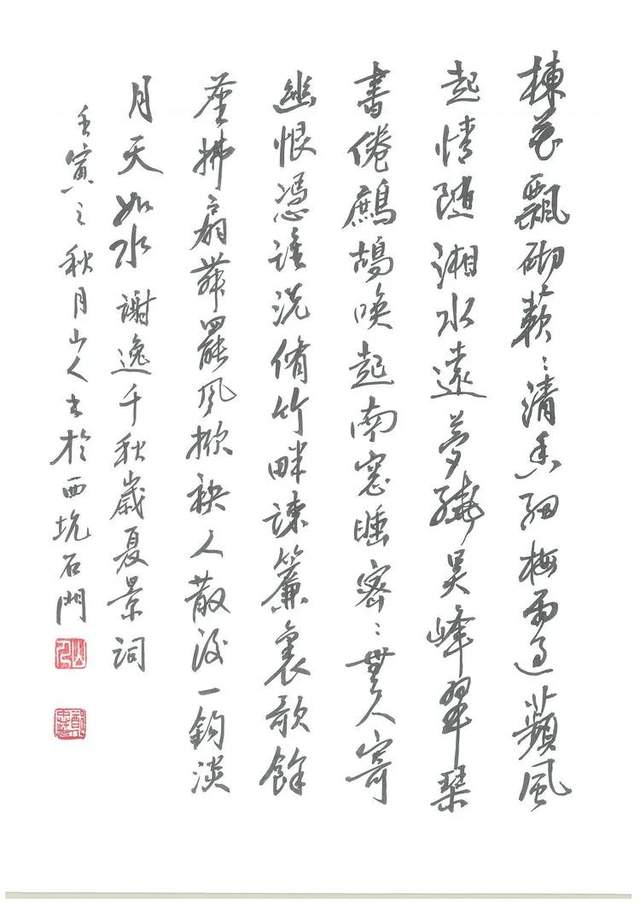 楝花飄砌蔌〻清香細梅雨過蘋風
起情隨湘水遠夢繞吳峰翠琴
書倦鷓鴣喚起南窓睡密〻無人寄
幽恨憑誰洗脩竹畔疎簾裏歌餘
塵拂扇舞罷風掀袂人散後一鈎淡
月天如水 謝逸千秋歲夏景詞
壬寅之秋月山人書於西坑石門